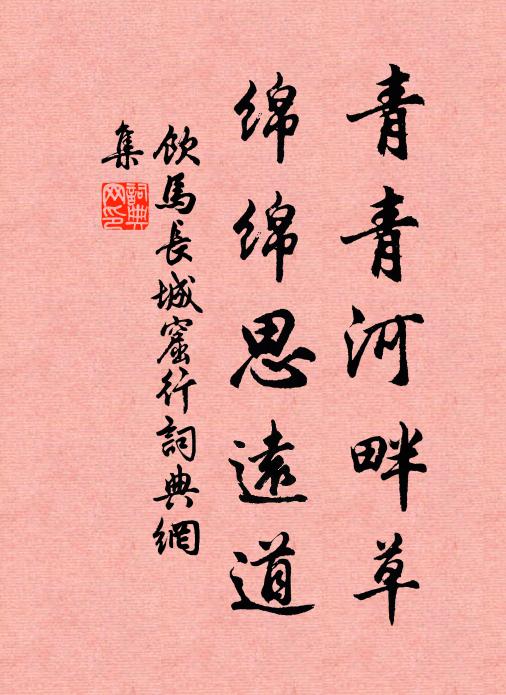 青青河畔草
绵绵思遠道
飲馬長城窟行詞典網
集
詞典
网印